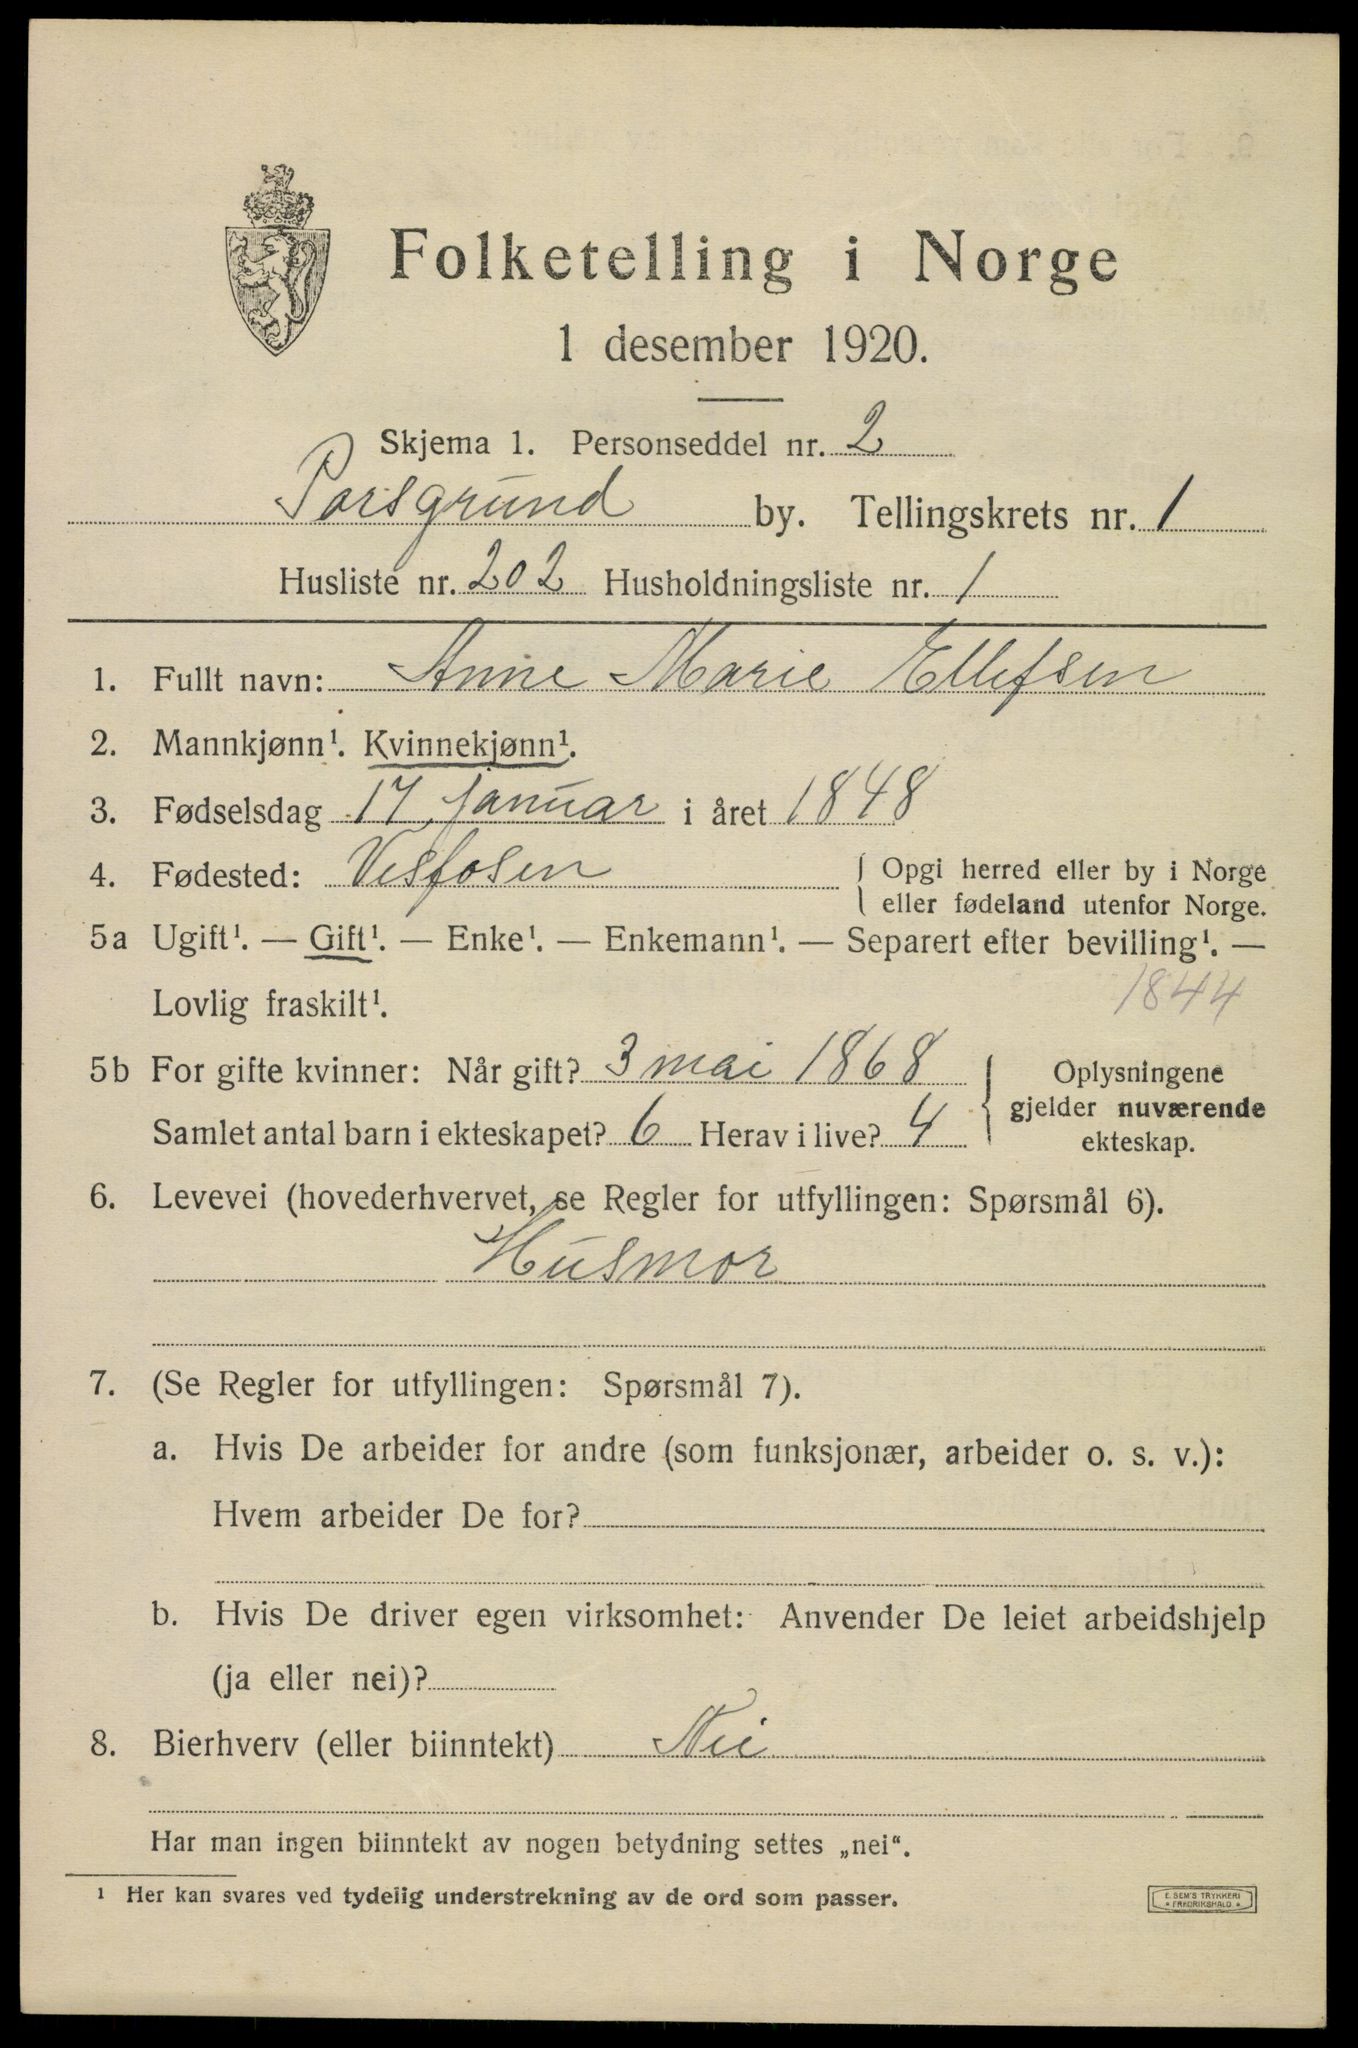 Folketelling i Norge
1 desember 1920.
Skjema 1. Personseddel nr. 2
Porsgrund by. Tellingskrets nr. 1
Husliste nr. 202 Husholdningsliste nr. 1
1. Fullt navn: Anne Marie Ellefsen
2. Mannkjønn¹. Kvinnekjønn¹.
3. Fødselsdag 17 januar i året 1848
4. Fødested: Vesfosen { Opgi herred eller by i Norge
eller fødeland utenfor Norge.
5a Ugift¹. — Gift¹. — Enke¹. — Enkemann¹. — Separert efter bevilling¹. —
Lovlig fraskilt¹. 1844
5b For gifte kvinner: Når gift? 3 mai 1868 { Oplysningene
gjelder nuværende
Samlet antal barn i ekteskapet? 6 Herav i live? 4 ekteskap.
6. Levevei (hovederhvervet, se Regler for utfyllingen: Spørsmål 6).
Husmor
7. (Se Regler for utfyllingen: Spørsmål 7).
a. Hvis De arbeider for andre (som funksjonær, arbeider o. s. v.):
Hvem arbeider De for?
b. Hvis De driver egen virksomhet: Anvender De leiet arbeidshjelp
(ja eller nei)?
8. Bierhverv (eller biinntekt) Nei
Har man ingen biinntekt av nogen betydning settes „nei".
¹ Her kan svares ved tydelig understrekning av de ord som passer.
E. SEM'S TRYKKERI
• FREDRIKSHALD •